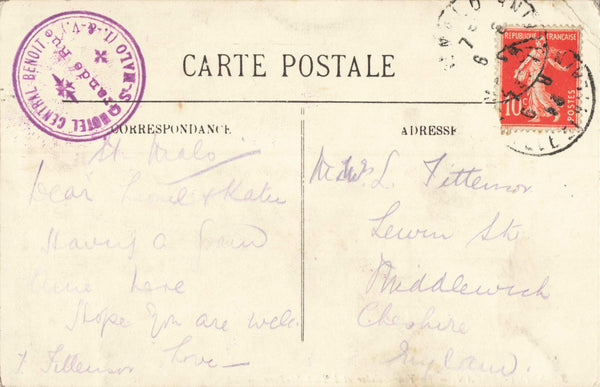 HOTEL CENTRAL BENOIT
Grande Rue
ST MALO (I. & V.)
CARTE POSTALE
REPUBLIQUE FRANÇAISE
10c
POSTES
CORRESPONDANCE
ADRESSE
St Malo
Dear Lionel & Katie
Having a Grand
time here
Hope you are well
Love
L. Tittensor
Lewin St
Middlewich
Cheshire
England